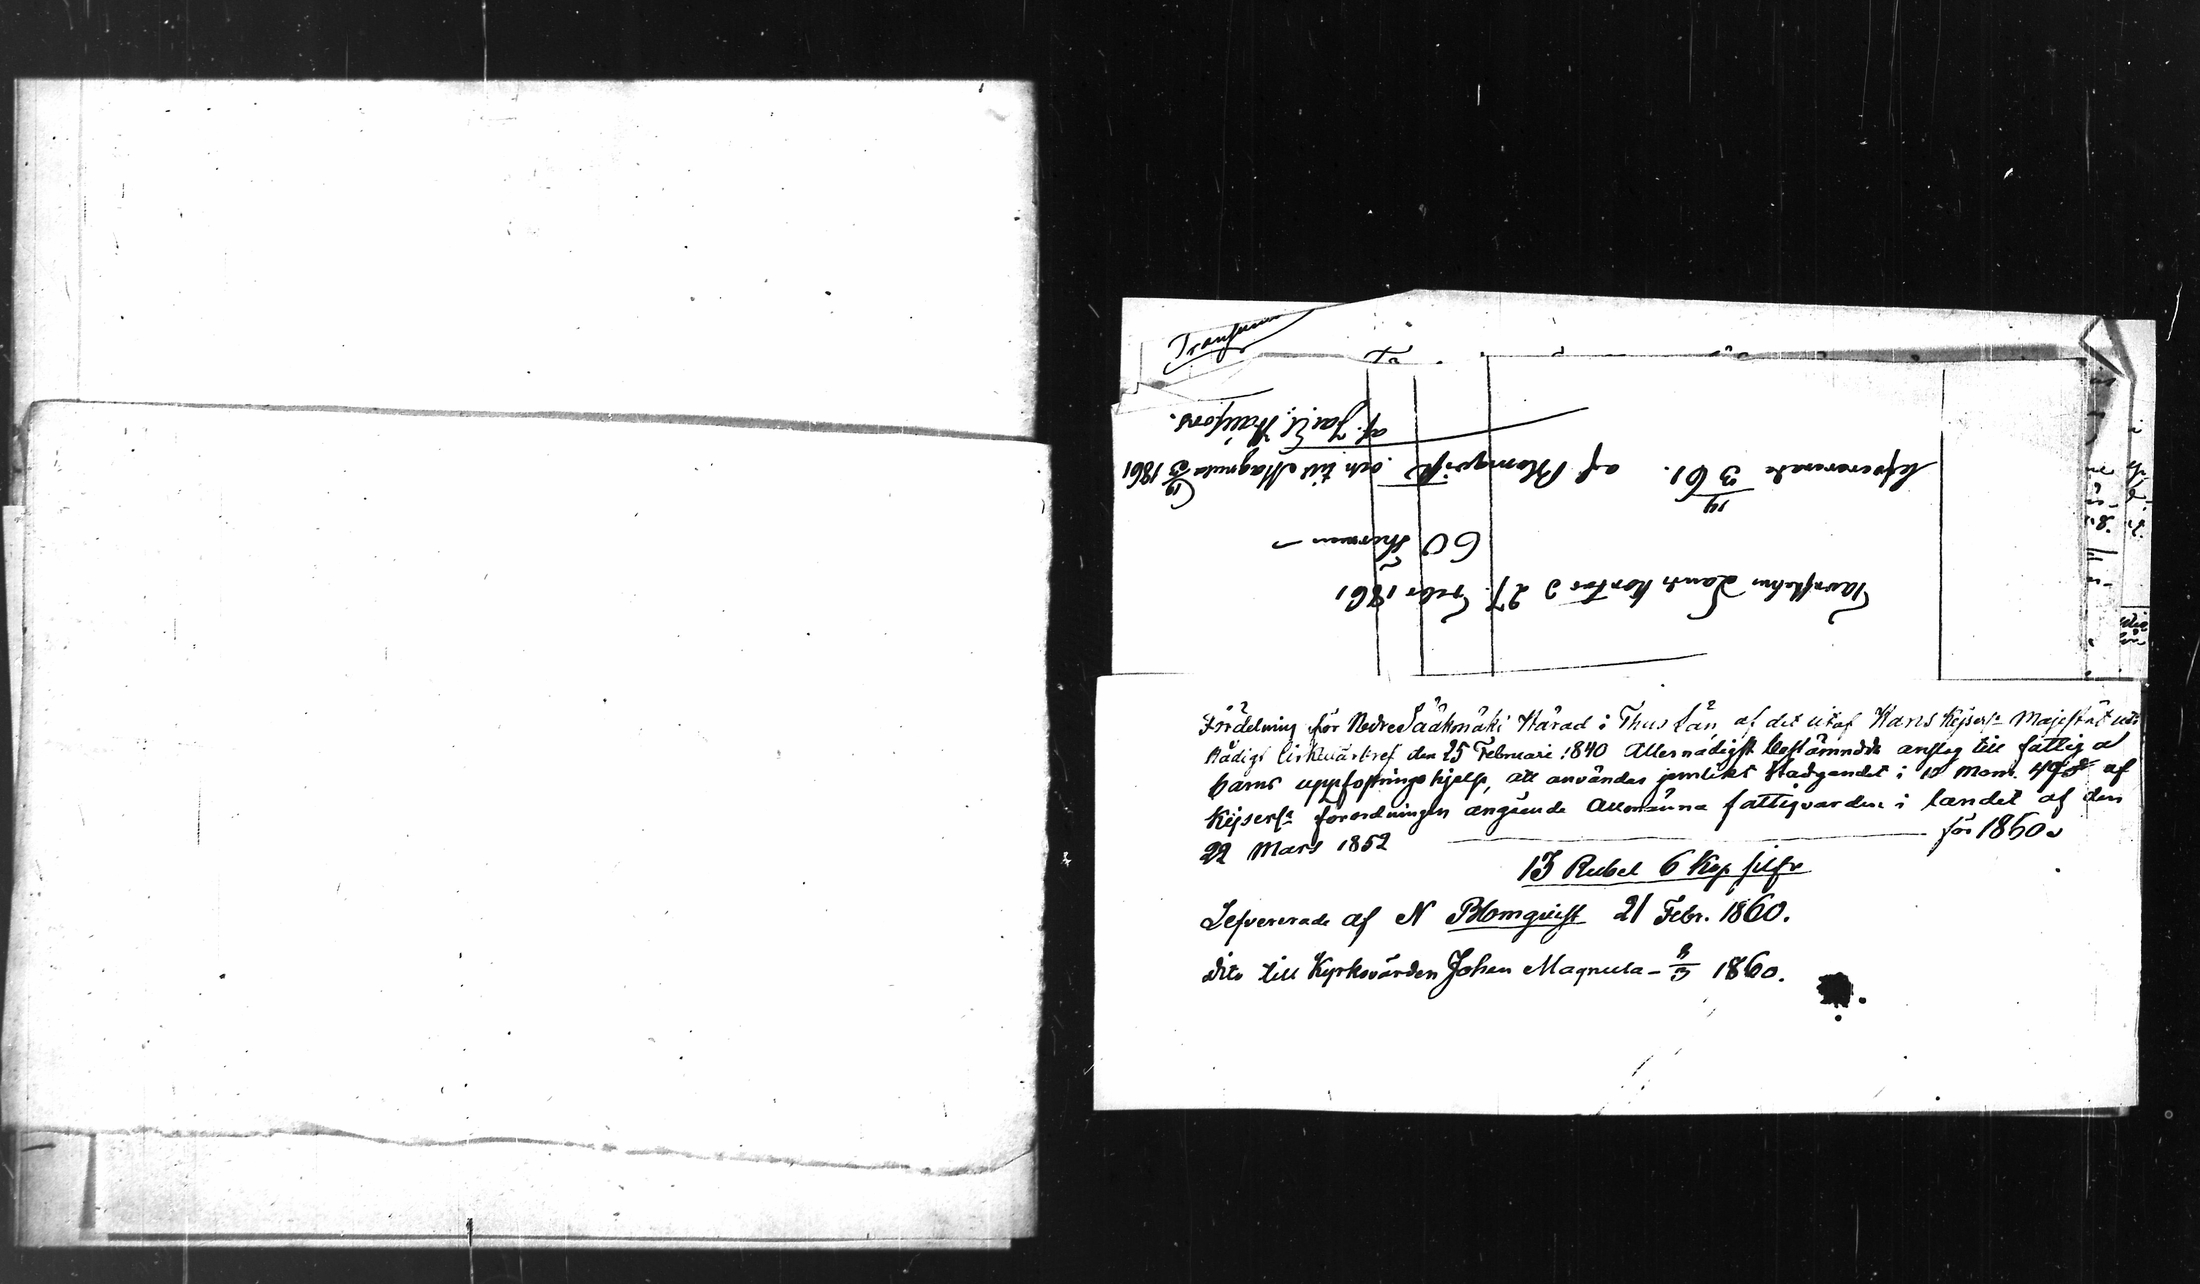 Transsum
Tavastehus Lands Kontor d 27. Febr 1861
60
Lefvererade 19/3 61. af Blomqvist och till Magnula 19/3 1861
af
Fördelning för Nedre Sääksmäki Härad i Thus Län, af det utaf Hans Kejserl:a Majestät uti
Nådigt Cirkulärbref den 25 Februari 1840 Allernådigst bestämnde anslag till fattig a
barns uppfostringshjelp, att användas jemlikt stadgandet i 10 Mom. 4 § af
Kejserl:a förordningen angående Allmänna fattigvarden i landet af den
22 Mars 1852 för 1860.
13 Rubel 6 Kop silfr
Lefvererade af N Blomqvist 21 Febr. 1860.
dito till Kyrkovärden Johan Magnula - 8/3 1860.